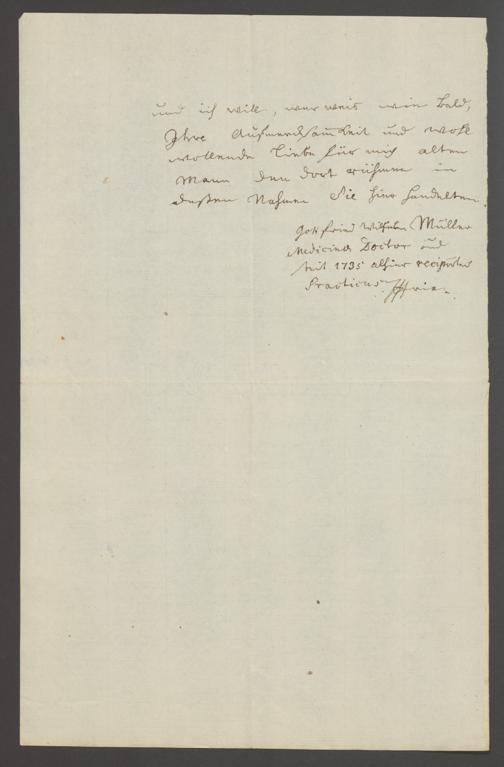 und ich will, wer weis wie bald,
Ihre Aufmercksamkeit und wohl
wollende Liebe für mich alten
Mann den dort rühmen in
deßen Nahmen Sie hier handelten.
Gottfried Wilhelm Müller
Medicinae Doctor und
seit 1735 alhier recipirter
Practicus.